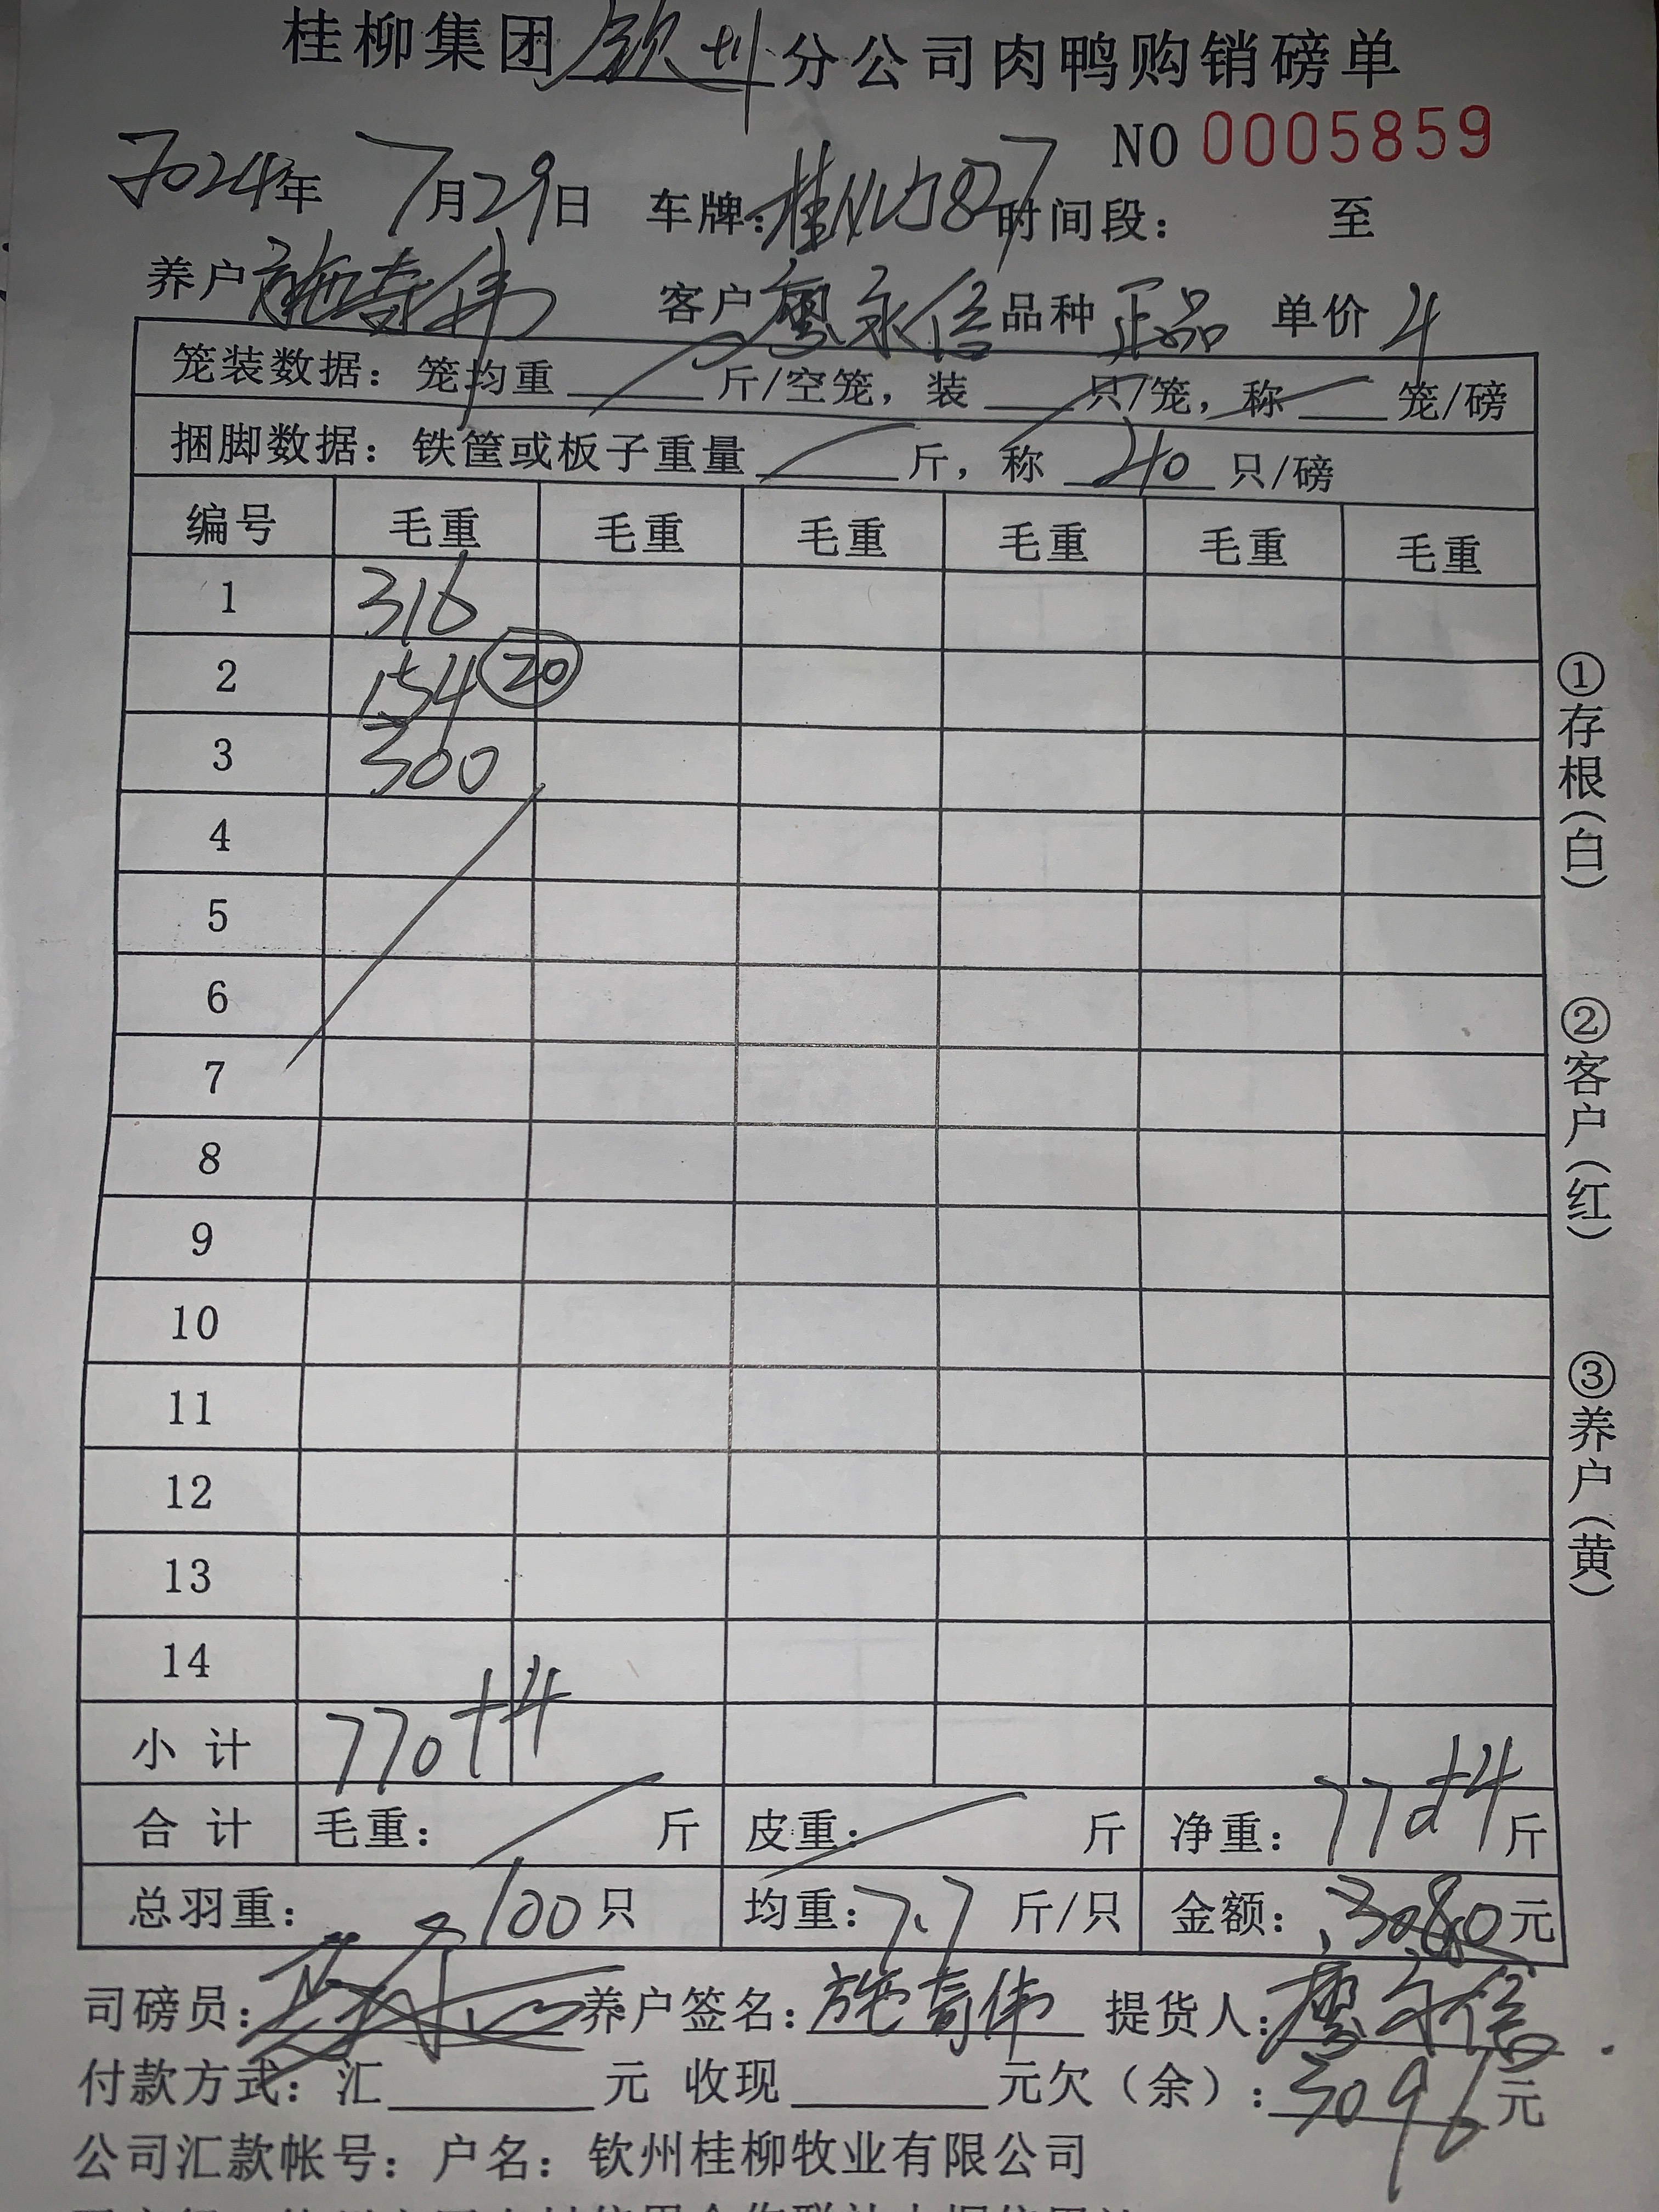 桂柳集团钦州分公司肉鸭购销磅单
NO 0005859
2024年7月29日 车牌:桂 827 时间段: 至
养户 施奇伟 客户 廖永信 品种 正品 单价 4
笼装数据: 笼均重 斤/空笼, 装 只/笼, 称 笼/磅
捆脚数据: 铁筐或板子重量 斤, 称 40 只/磅
编号 毛重 毛重 毛重 毛重 毛重 毛重
1 316
2 154 20
3 300
4
5
6
7
8
9
10
11
12
13
14
小计 770+4
合计 毛重: 斤 皮重: 斤 净重: 770+4 斤
总羽重: 100 只 均重: 7.7 斤/只 金额: 3080 元
司磅员: 养户签名: 施奇伟 提货人: 廖永信
付款方式: 汇 元 收现 元欠(余): 3096 元
公司汇款帐号: 户名: 钦州桂柳牧业有限公司
①存根(白)
②客户(红)
③养户(黄)